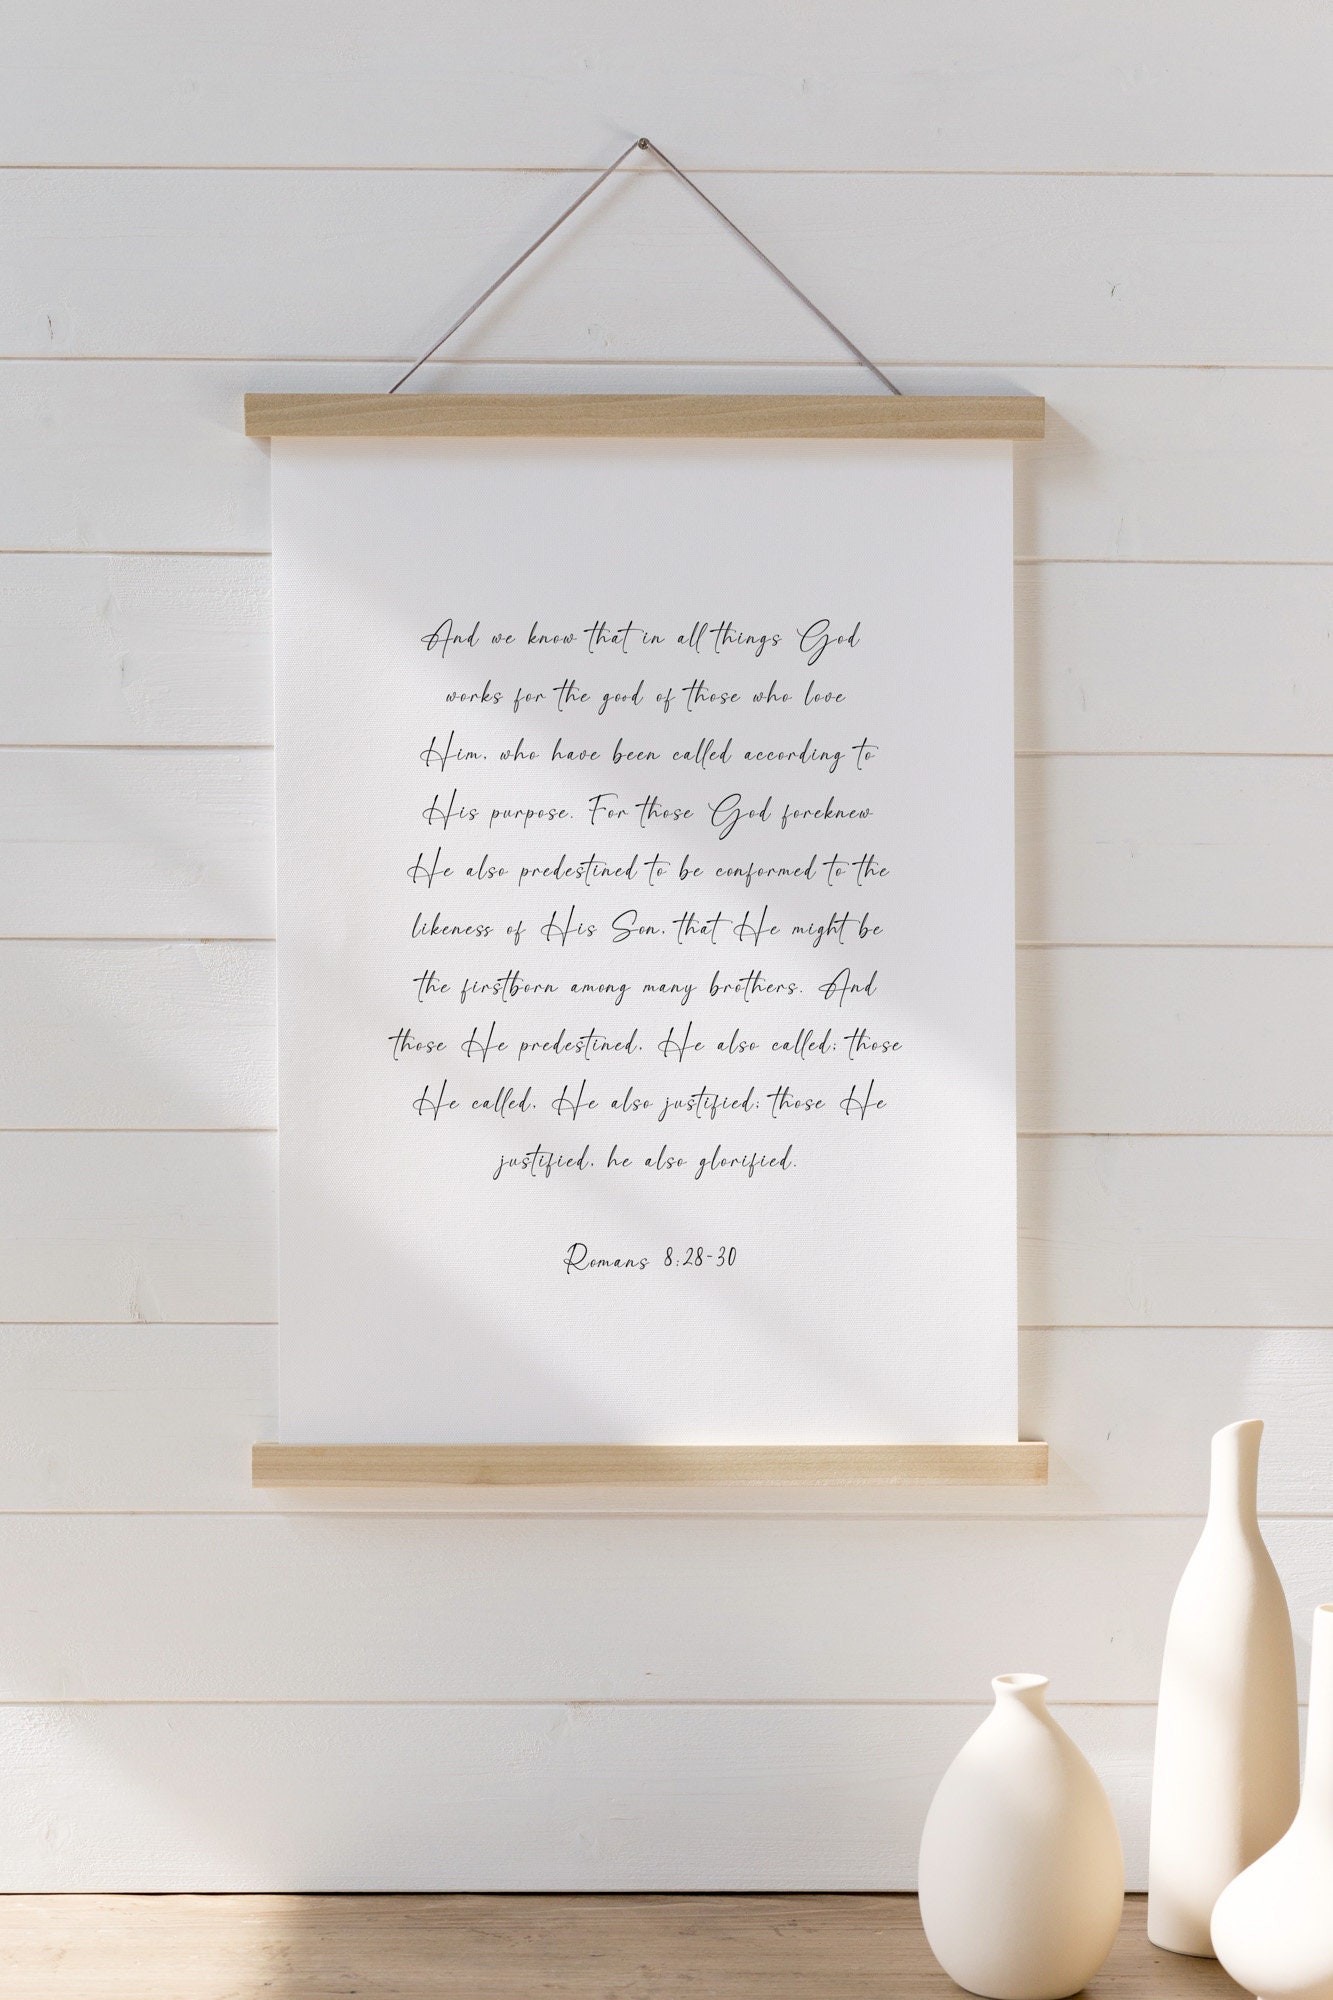 And we know that in all things God
works for the good of those who love
Him, who have been called according to
His purpose. For those God foreknew
He also predestined to be conformed to the
likeness of His Son, that He might be
the firstborn among many brothers. And
those He predestined, He also called; those
He called, He also justified; those He
justified, he also glorified.
Romans 8:28-30